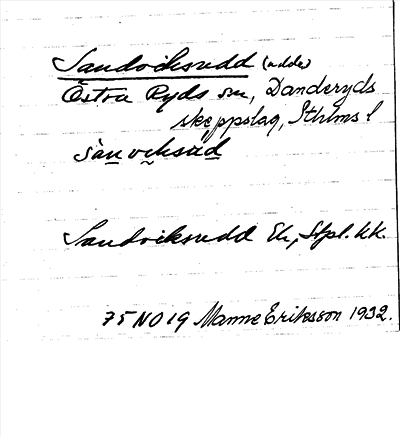 Sandviksudd (udde)
Östra Ryds sn, Danderyds
skeppslag, Sthlms l
sànviksùd
Sandviksudd Ek, Sjpl. kk.
75 NO 19 Manne Eriksson 1932.